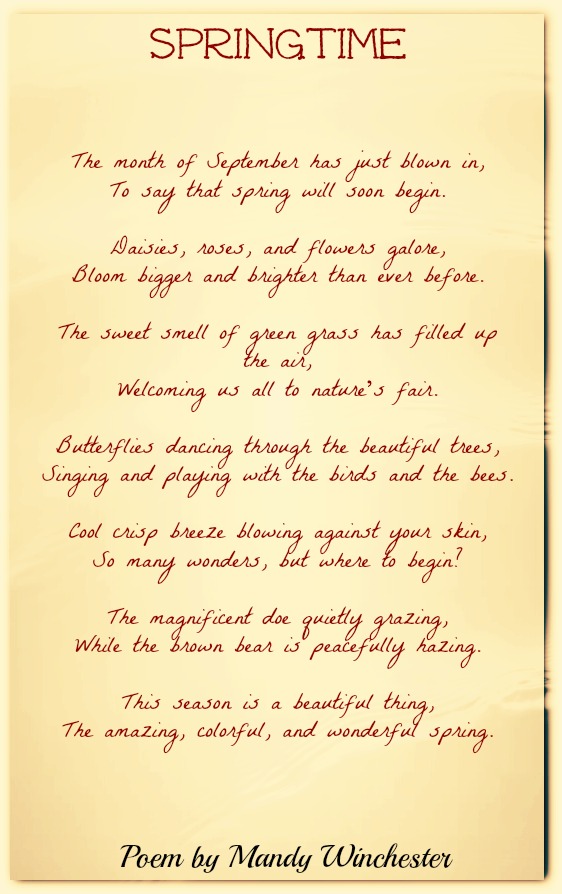 SPRINGTIME
The month of September has just blown in,
To say that spring will soon begin.
Daisies, roses, and flowers galore,
Bloom bigger and brighter than ever before.
The sweet smell of green grass has filled up
the air,
Welcoming us all to nature's fair.
Butterflies dancing through the beautiful trees,
Singing and playing with the birds and the bees.
Cool crisp breeze blowing against your skin,
So many wonders, but where to begin?
The magnificent doe quietly grazing,
While the brown bear is peacefully hazing.
This season is a beautiful thing,
The amazing, colorful, and wonderful spring.
Poem by Mandy Winchester